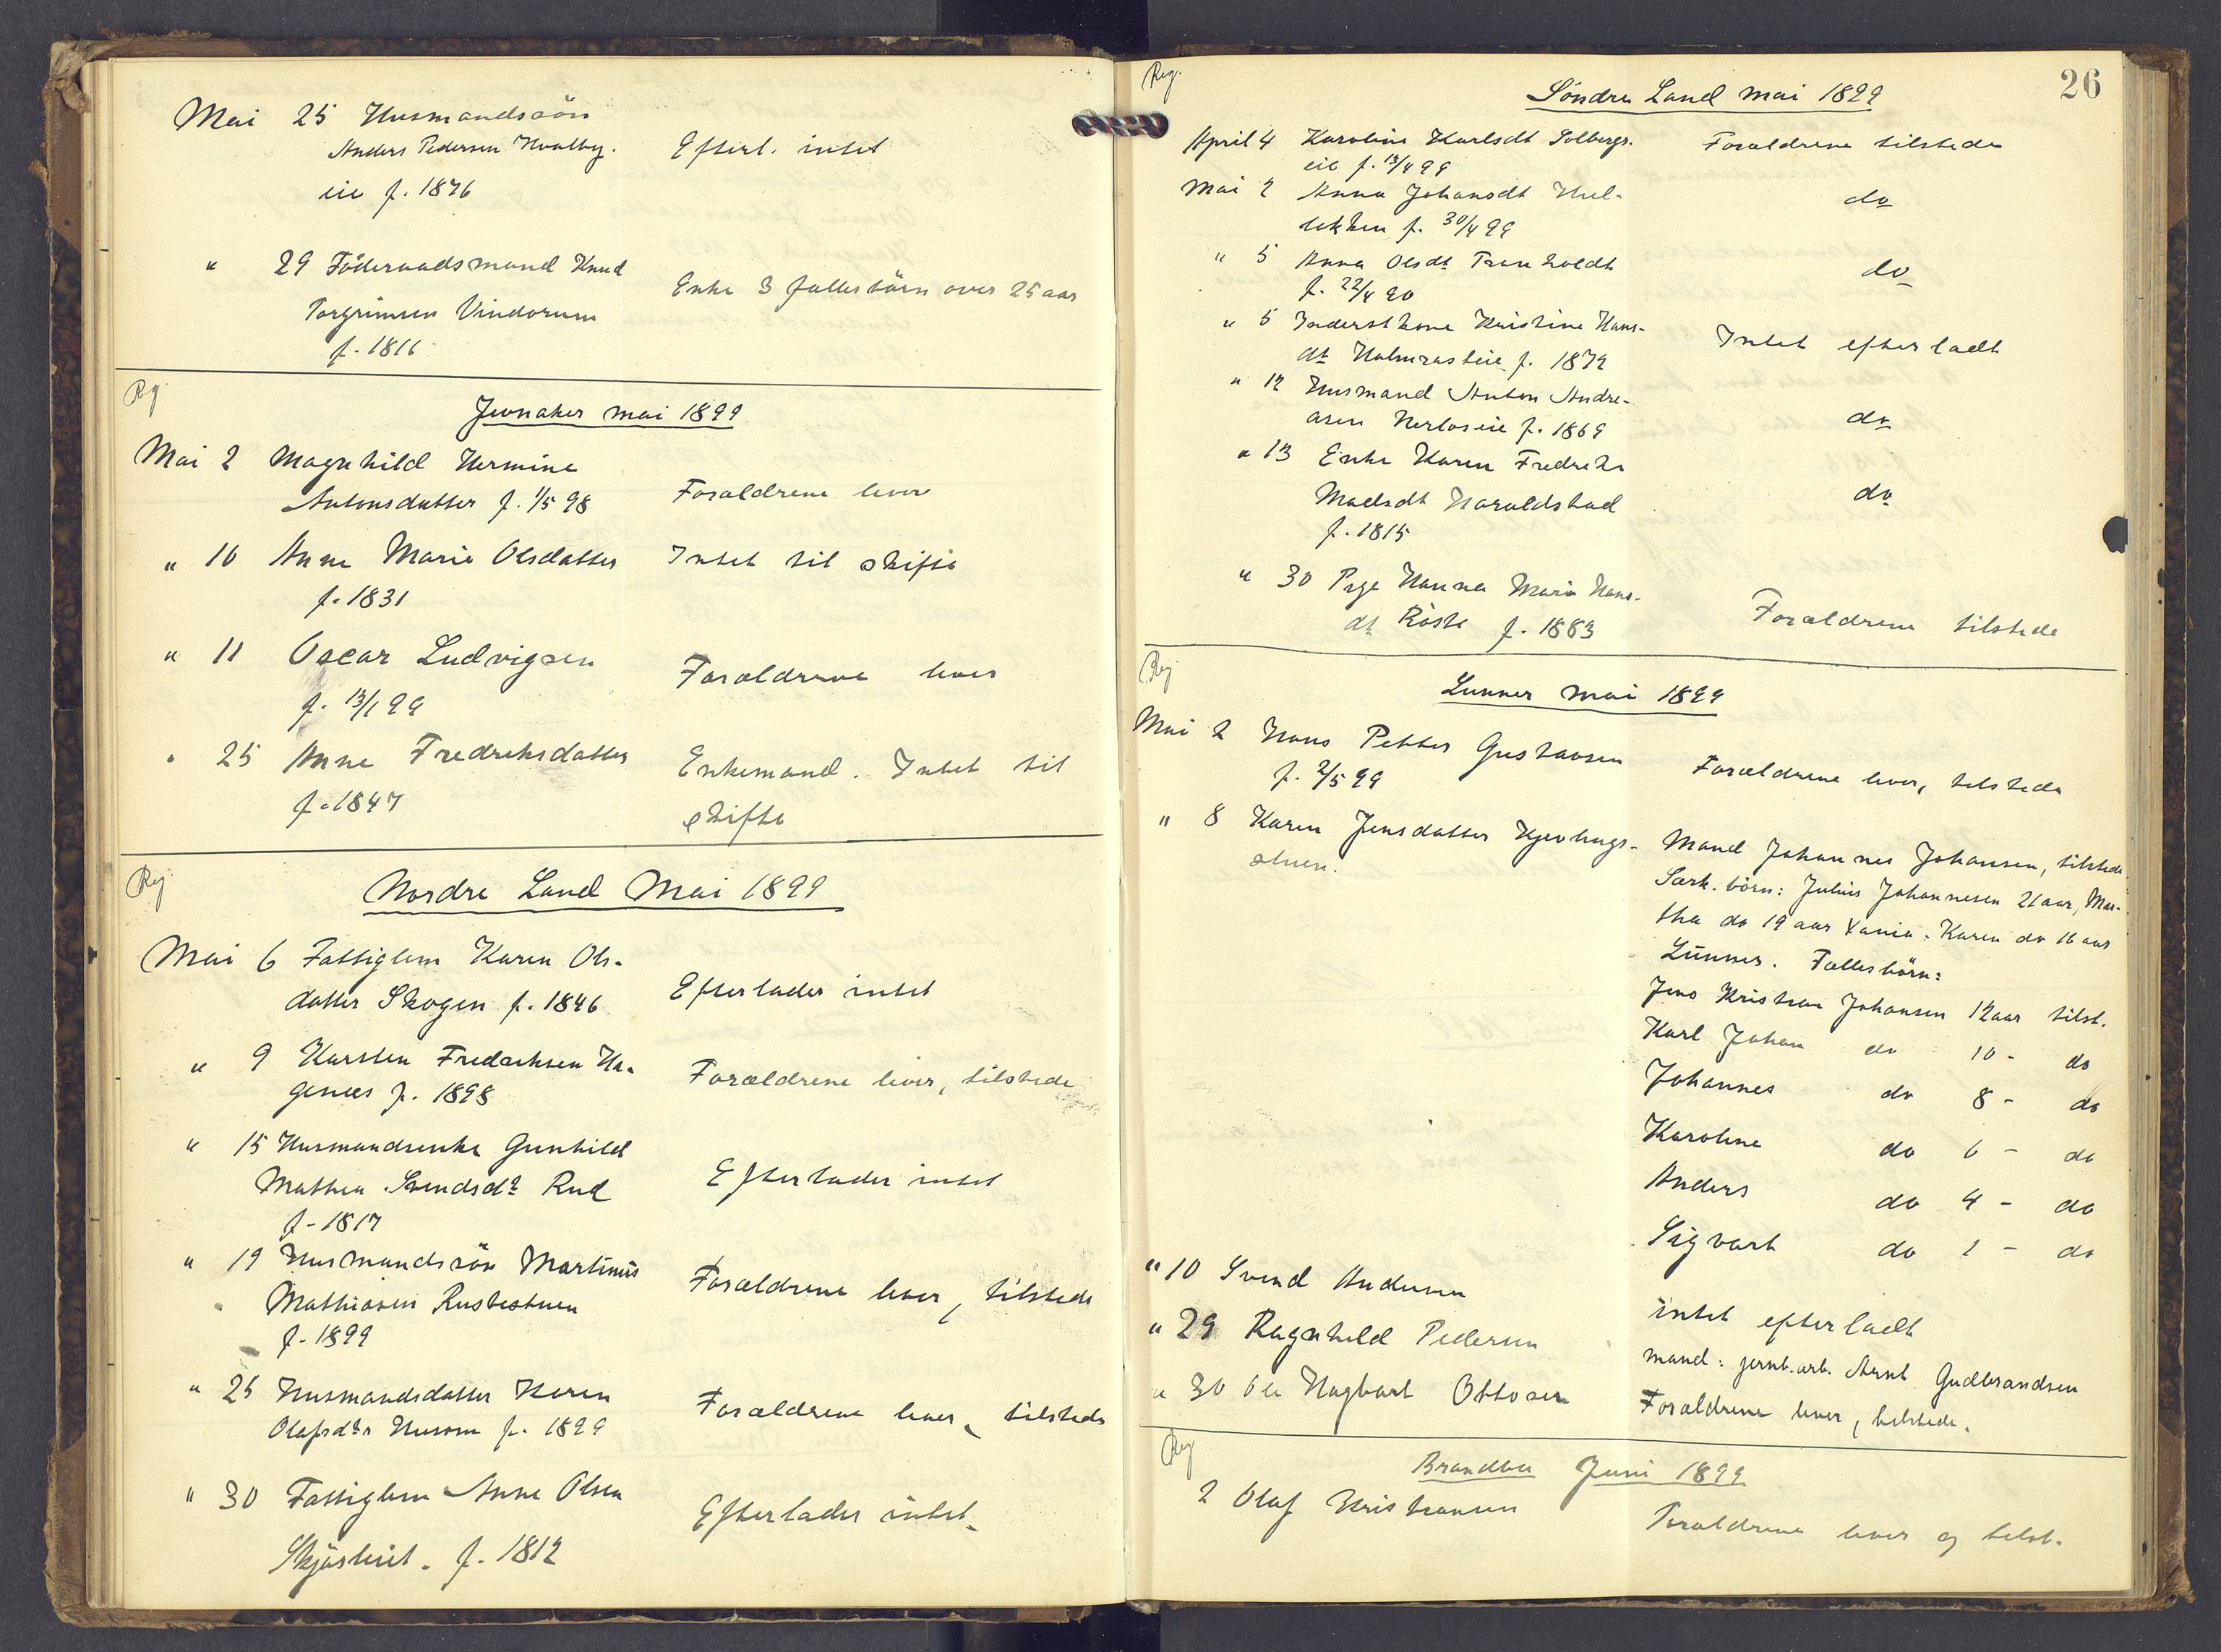 Mai 25 Husmandssön
Anders Pedersen Hvalby. Efterl. intet
eie f. 1876
" 29 Föderaadsmand Knud
Torgrimsen Vindorum Enke 3 fællesbörn over 25 aar
f. 1816
Reg.
Jevnaker mai 1899
Mai 2 Magnhild Hermine
Antonsdatter f. 1/5 98 Forældrene lever
" 10 Anne Marie Olsdatter Intet til skifte
f. 1831
" 11 Oscar Ludvigsen
f. 13/1 99 Forældrene lever
" 25 Anne Fredriksdatter Enkemand. Intet til
f. 1847 skifte
Reg.
Nordre Land Mai 1899
Mai 6 Fattiglem Karen Ols-
datter Skogen f. 1846 Efterlader intet
" 9 Karsten Fredriksen Ha-
genees f. 1898 Forældrene lever, tilstede
" 15 Husmandsenke Gunhild
Mathea Svendsdt Rud Efterlader intet
f. 1817
" 19 Husmandssön Martinus
Mathiasen Rustestuen Forældrene lever, tilstede
f. 1899
" 25 Husmandsdatter Karen
Olafsdtr Husom f. 1899 Forældrene lever, tilstede
" 30 Fattiglem Anne Olsen Efterlader intet
f. 1812
26
Reg.
Söndre Land mai 1899
April 4 Karoline Karlsdt Solbergs- Forældrene tilstede
eie f. 13/4 99
Mai 2 Anna Johansdt Hul- do
lekken f. 30/4 99
" 5 Anna Olsdt Tranholdt do
f. 22/4 90
" 5 Inderstkone Kristine Hans- Intet efterladt
dt f. 1872
" 12 Husmand Anton Andre-
asen f. 1869 do
" 13 Enke Karen Fredrikke
Madsdt Haraldstad do
f. 1815
" 30 Pige Hanna Marie Hans-
dt Röste f. 1883 Forældrene tilstede
Reg.
Lunner mai 1899
Mai 2 Hans Petter Gustavsen
f. 2/5 99 Forældrene lever, tilstede
" 8 Karen Jensdatter Kjevlings- Mand Johannes Johansen, tilstede
stuen. Særk. börn: Julius Johannesen 21 aar, Mar-
tha do 19 aar Karen do 16 aar
Lunner. Fællesbörn:
Jens Kristian Johansen 12 aar tilst.
Karl Johan do 10 - do
Johannes do 8 - do
Karoline do 6 - do
Anders do 4 - do
Sigvart do 1 - do
" 10 Svend Andersen intet efterladt
" 29 Ragnhild Pedersen mand: jernb.arb. Arnt Gudbrandsen
" 30 Ole Hagbart Ottosen Forældrene lever, tilstede.
Reg.
Brandbu Juni 1899
2 Olaf Kristiansen Forældrene lever og tilst.